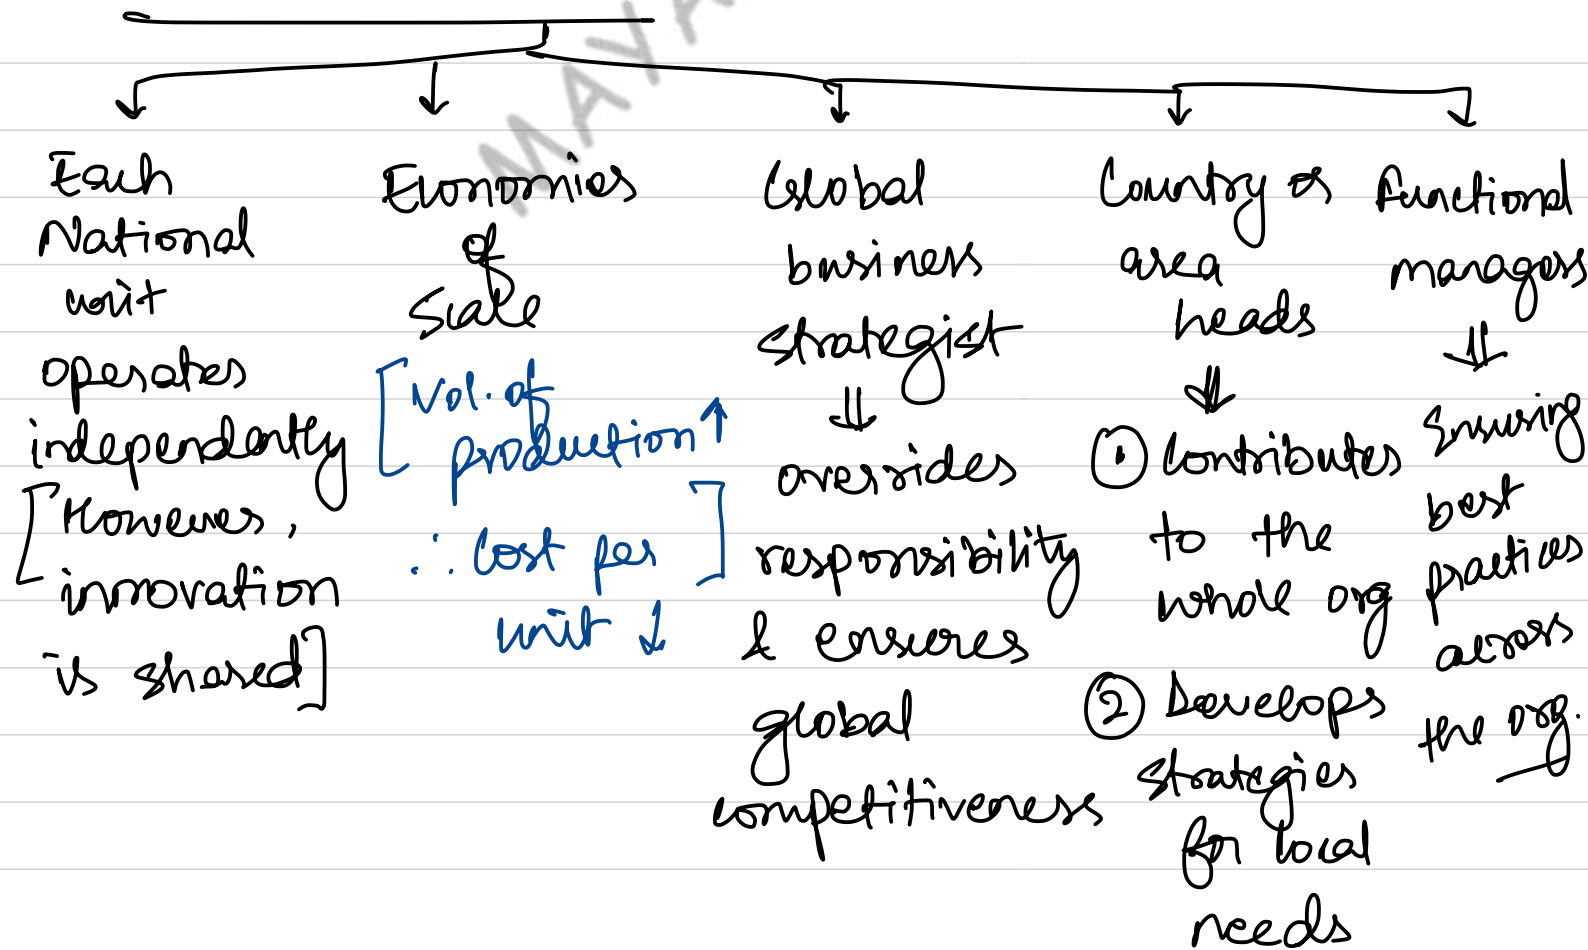 MAYA
Each
National
unit
operates
independently
[However,
innovation
is shared]
Economies
of
Scale
[Vol. of
production ↑
∴ Cost per ]
unit ↓
Global
business
strategist
⇓
overrides
responsibility
& ensures
global
competitiveness
Country or
area
heads
⇓
① Contributes
to the
whole org
② Develops
strategies
for local
needs
Functional
managers
⇓
Ensuring
best
practices
across
the org.